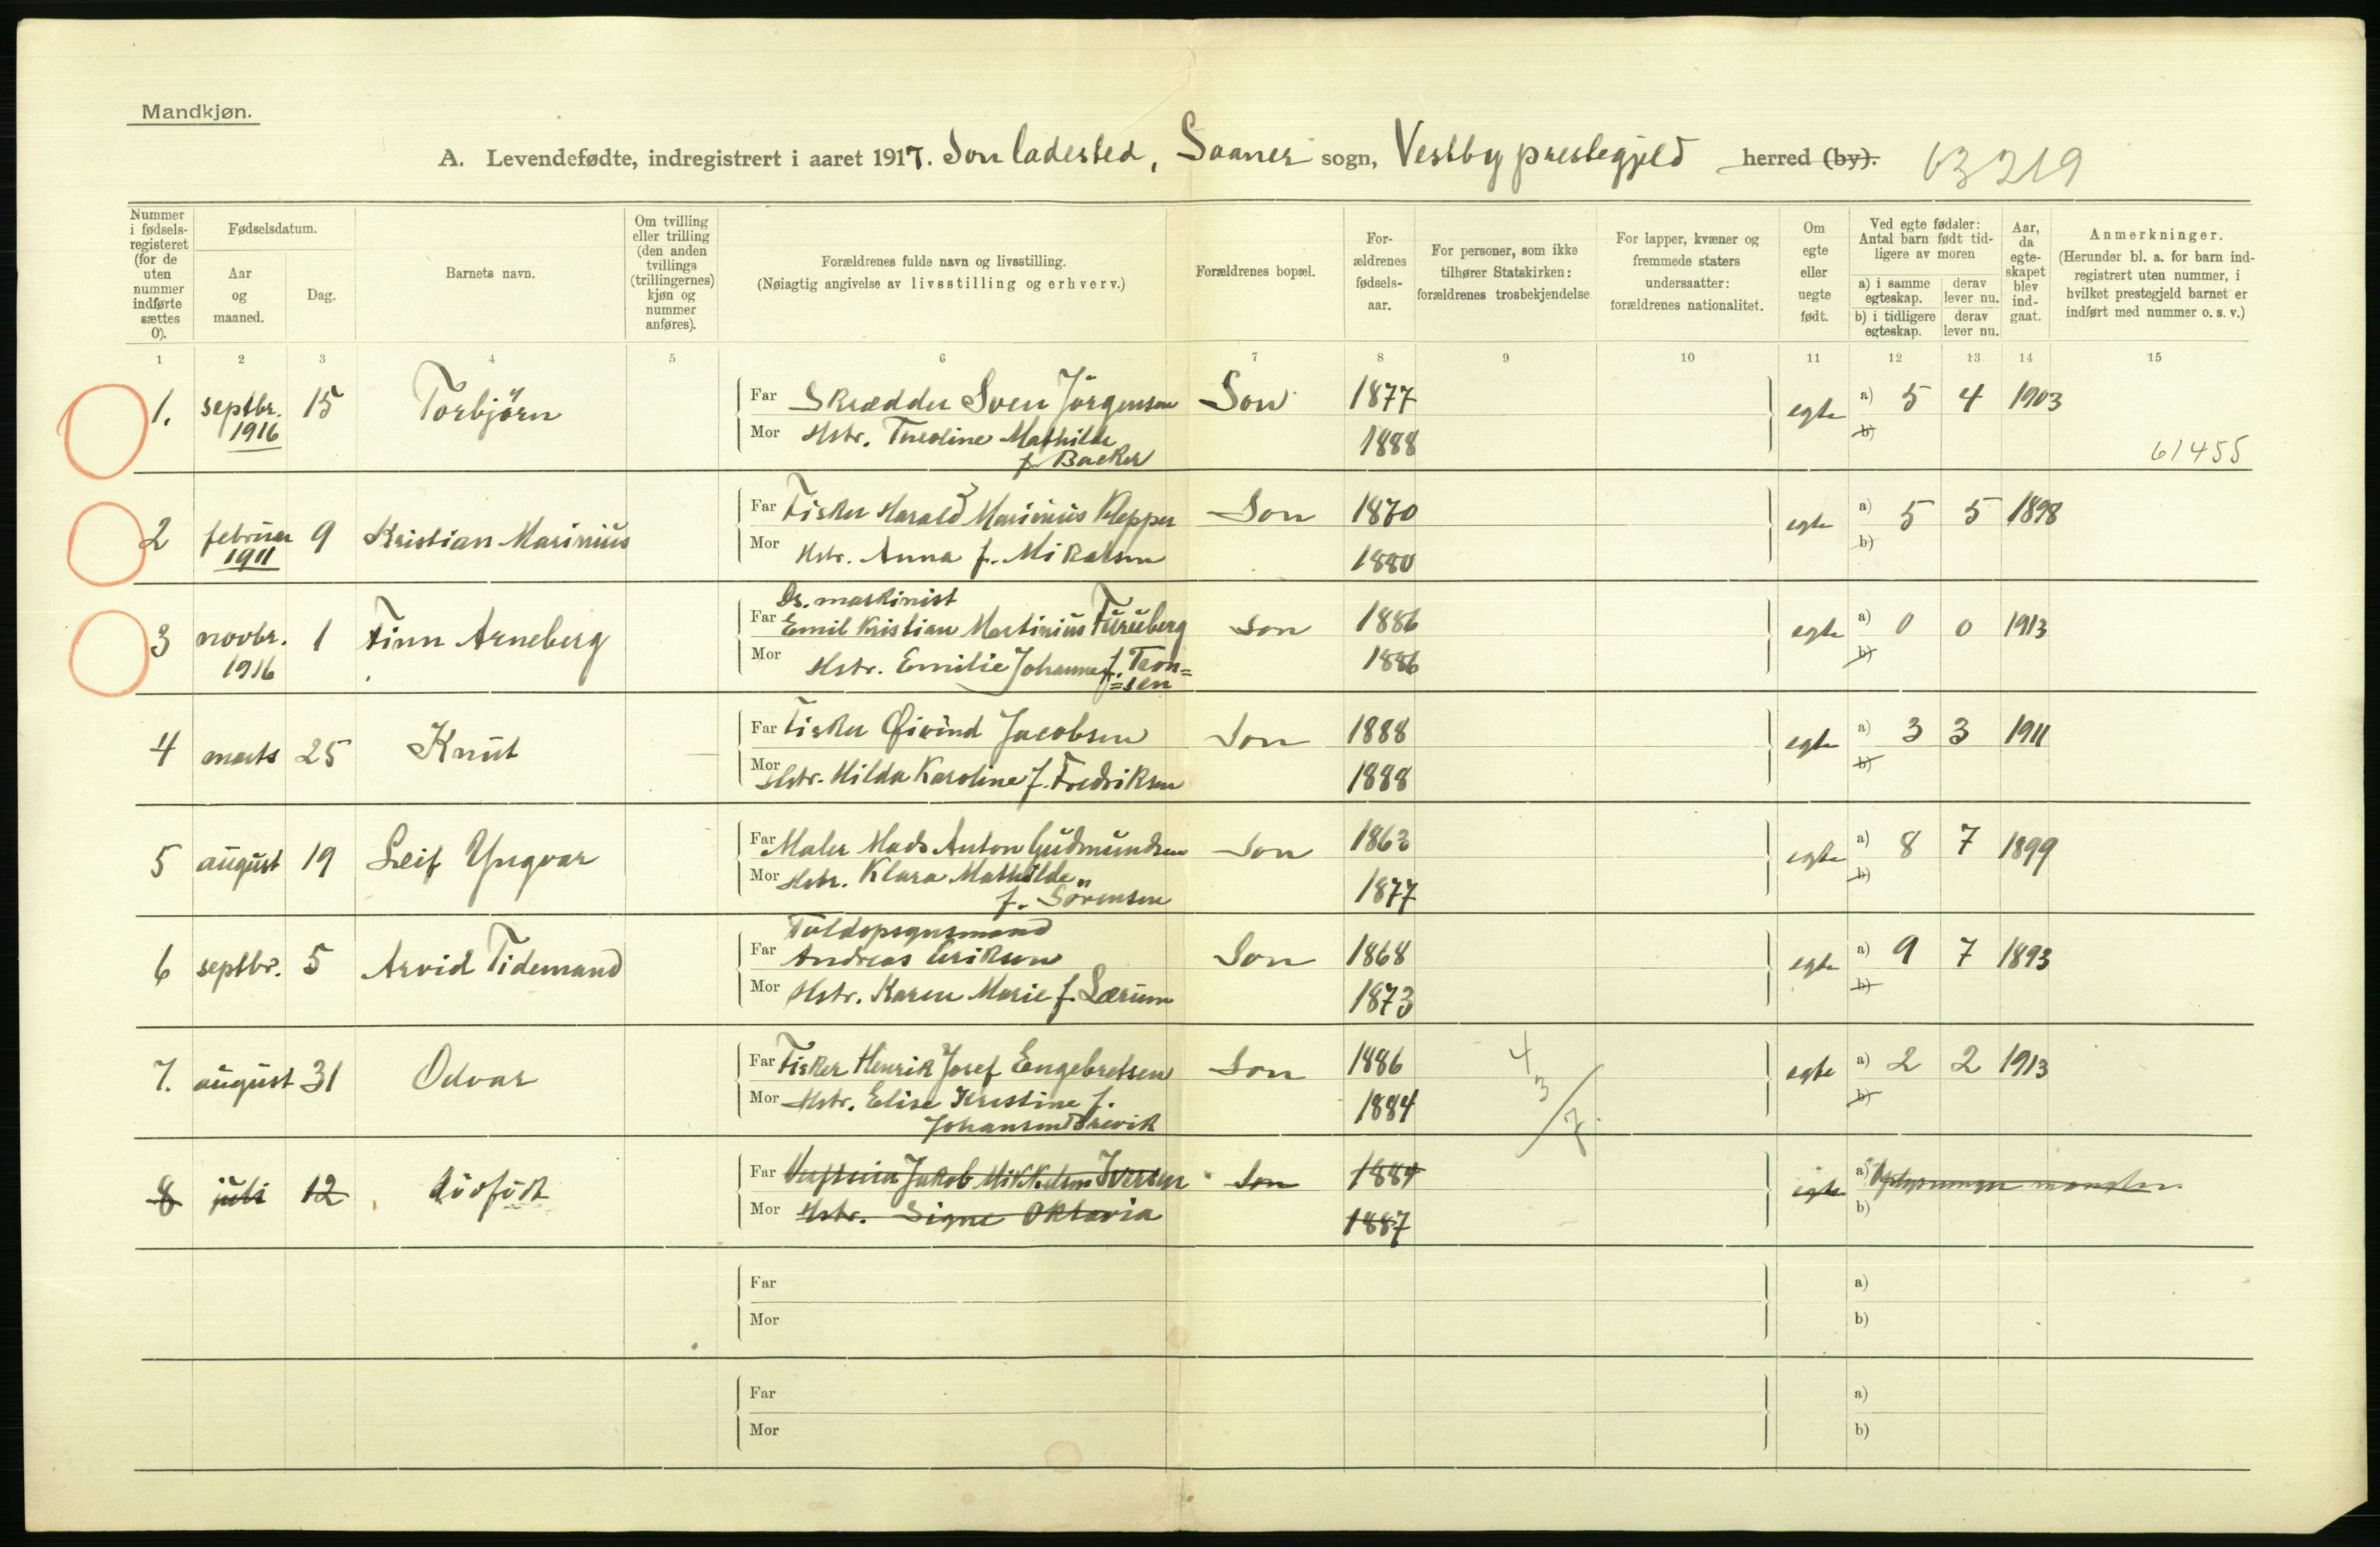 Mandkjøn.
A. Levendefødte, indregistrert i aaret 1917. Son ladested, Saaner sogn, Vestby prestegjeld herred (by). 63219
Nummer i fødsels-registeret (for de uten nummer indførte sættes 0).
Fødselsdatum.
Aar og maaned.
Dag.
Barnets navn.
Om tvilling eller trilling (den anden tvillings (trillingernes) kjøn og nummer anføres).
Forældrenes fulde navn og livsstilling.
(Nøiagtig angivelse av livsstilling og erhverv.)
Forældrenes bopæl.
For-ældrenes fødsels-aar.
For personer, som ikke tilhører Statskirken: forældrenes trosbekjendelse
For lapper, kvæner og fremmede staters undersaatter: forældrenes nationalitet.
Om egte eller uegte født.
Ved egte fødsler: Antal barn født tid-ligere av moren
a) i samme egteskap. derav lever nu.
b) i tidligere egteskap. derav lever nu.
Aar, da egte-skapet blev ind-gaat.
Anmerkninger.
(Herunder bl. a. for barn ind-registrert uten nummer, i hvilket prestegjeld barnet er indført med nummer o. s. v.)
1 2 3 4 5 6 7 8 9 10 11 12 13 14 15
1. septbr. 1916 15 Torbjörn
Far Skrædder Sven Jörgensen Son 1877 egte a) 5 4 1903
Mor Hstr. Mathilde 1888 b)
f. Backer 61455
2 februar 1911 9 Kristian Marinius
Far Fisker Harald Marinius Klepper Son 1870 egte a) 5 5 1898
Mor Hstr. Anna f. Mikalsen 1880 b)
3 novbr. 1916 1 Finn Arneberg
Ds. maskinist
Far Emil Kristian Martinius Furuberg Son 1886 egte a) 0 0 1913
Mor Hstr. Emilie Johanne f. Tron= 1886 b)
=sen
4 marts 25 Knut
Far Fisker Öivind Jacobsen Son 1888 egte a) 3 3 1911
Mor Hstr. Hilda Karoline f. Fredriksen 1888 b)
5 august 19 Leif Yngvar
Far Maler Mads Anton Gudmundsen Son 1863 egte a) 8 7 1899
Mor Hstr. Klara Mathilde 1877 b)
f. Sörensen
6 septbr. 5 Arvid Tidemand
Toldopsynsmand
Far Andreas Eriksen Son 1868 egte a) 9 7 1893
Mor Hstr. Karen Marie f. Lærum 1873 b)
7. august 31 Odvar
Far Fisker Henrik Josef Engebretsen Son 1886 4 egte a) 2 2 1913
Mor Hstr. Elise Kristine f. 1884 3/7. b)
Johansen Brevik
8 juli 12 dödfödt
Far Jakob Mikkelsen Iversen Son 1884 egte a) Oplysninger mangler.
Mor Hstr. Signe Oktavia 1887 b)
Far a)
Mor b)
Far a)
Mor b)